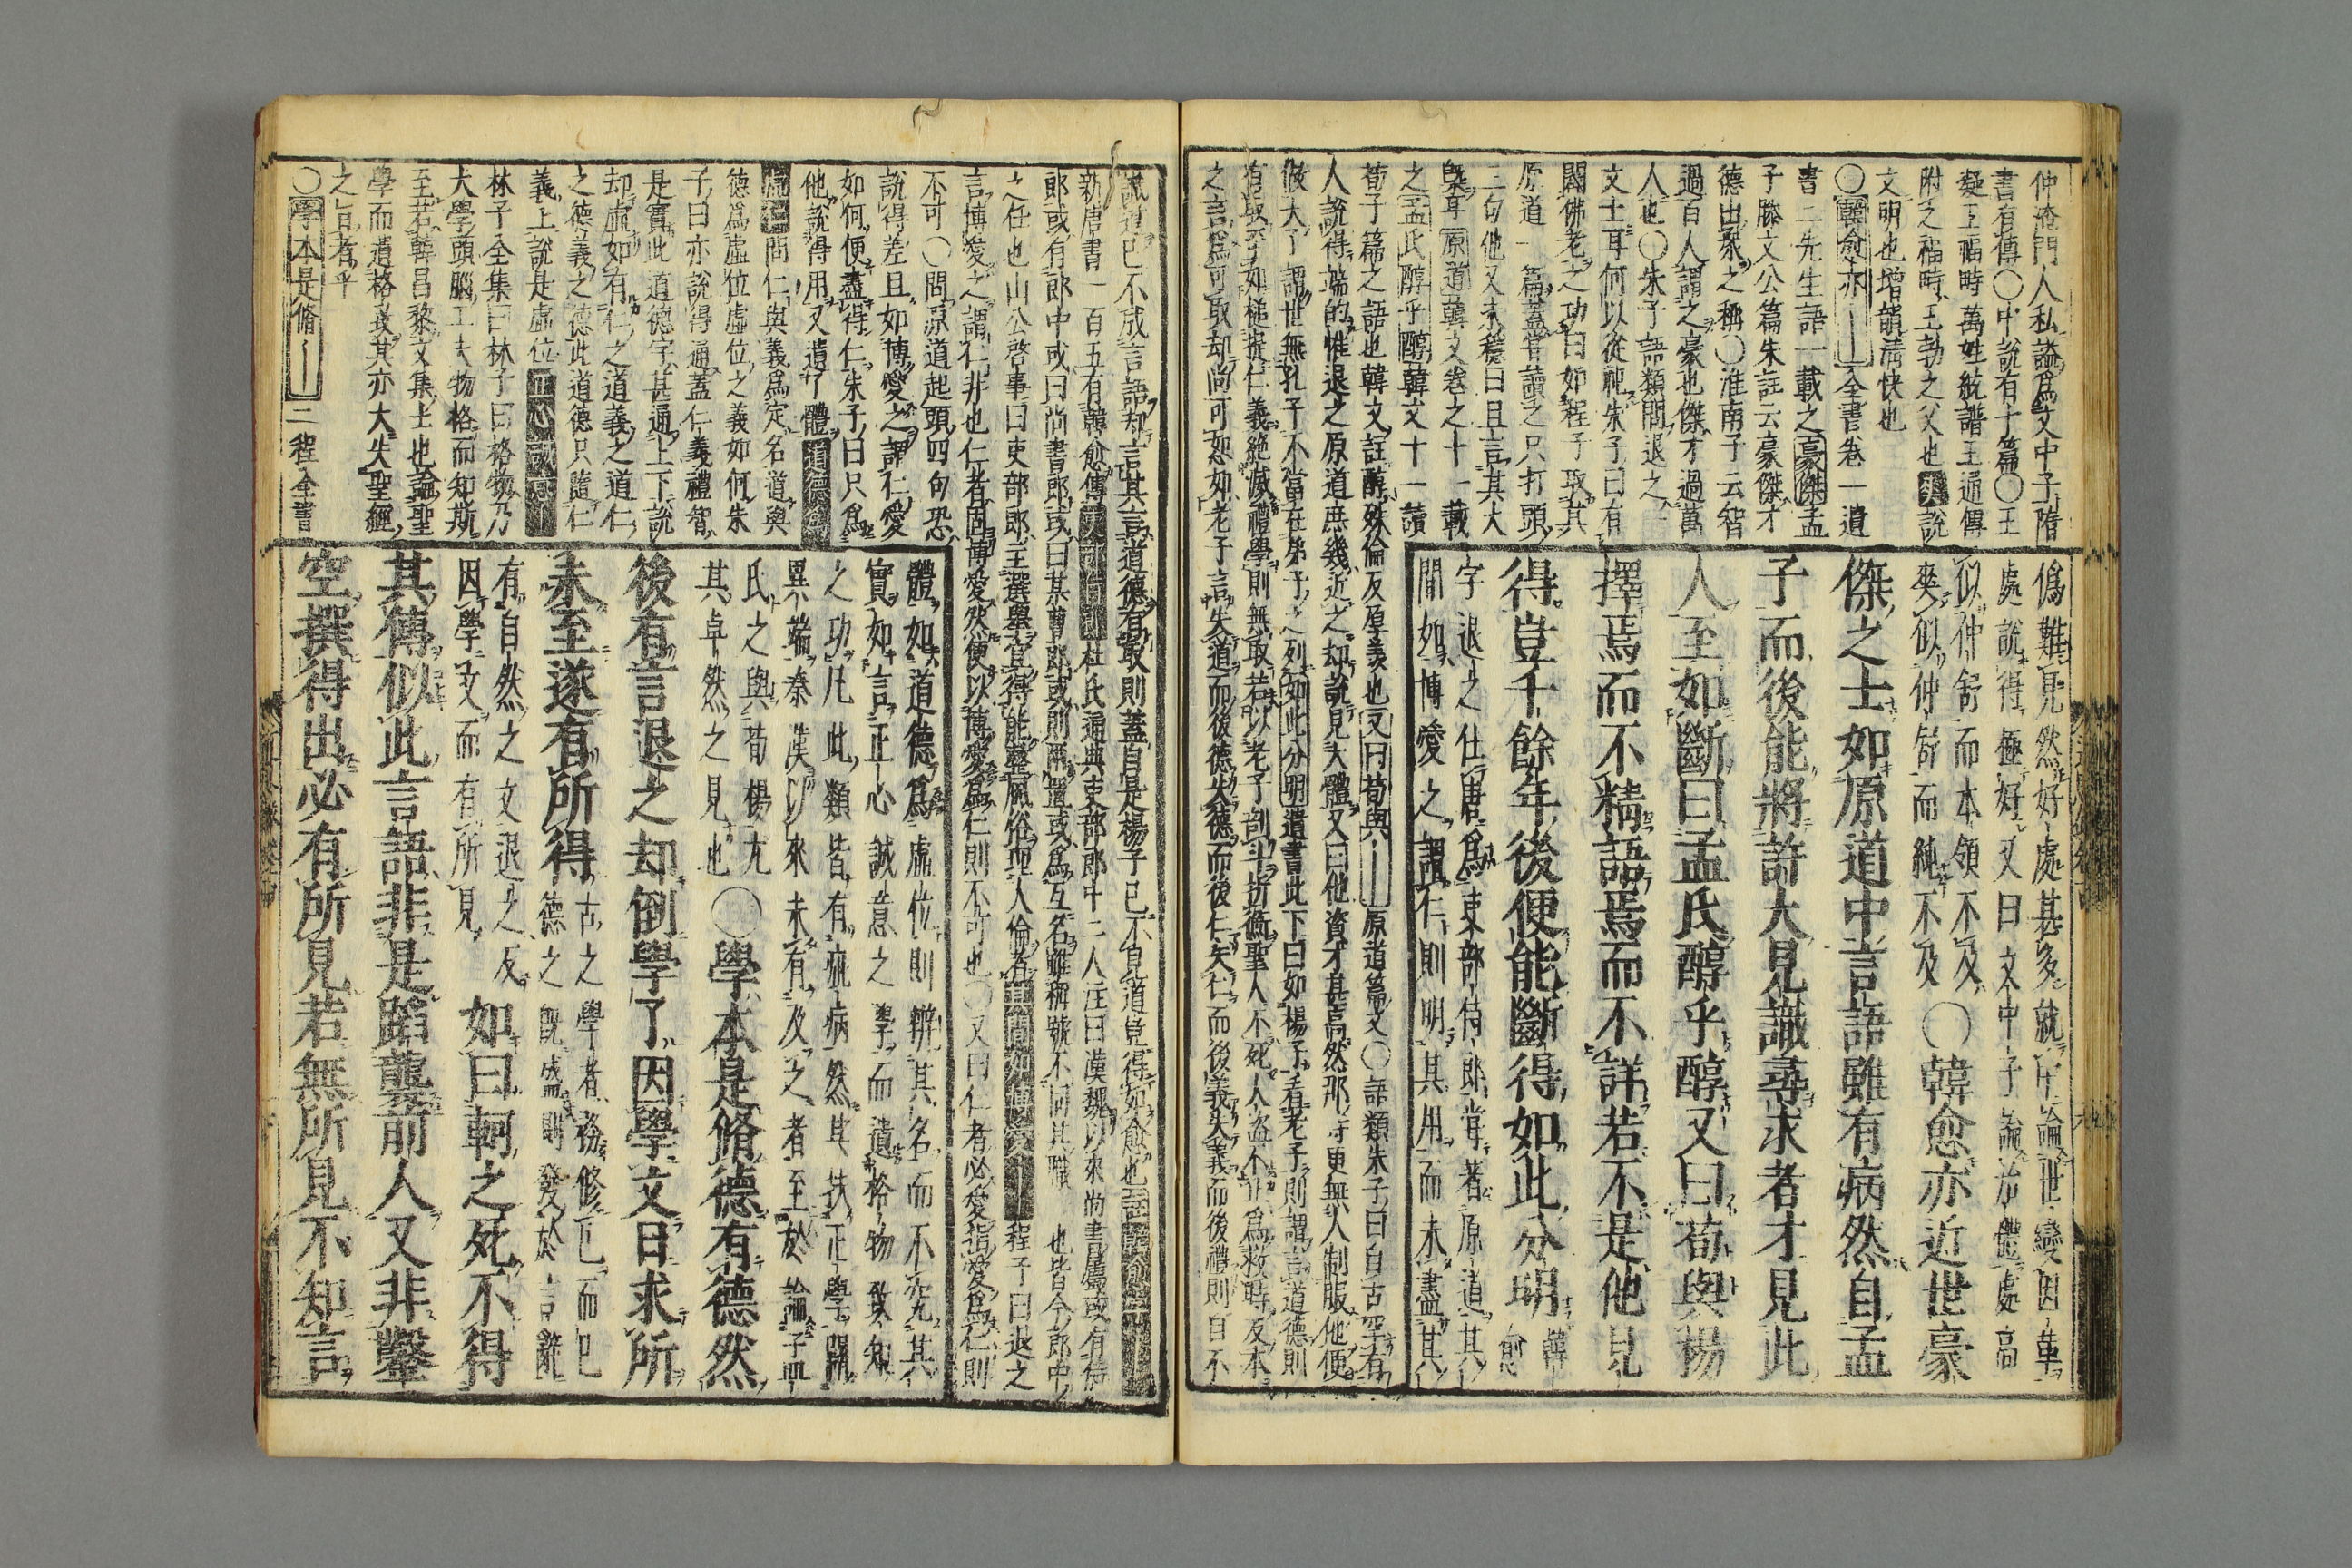 仲淹門人私謚爲文中子隋
書有傳〇中說有十篇〇王
疑上福畤萬姓統譜王通傳
附之福畤王勃之父也爽說
文明也增韻淸快也
〇韓愈亦｜全書卷一遺
書二先生語一載之豪傑孟
子滕文公篇朱註云豪傑才
德出衆之稱〇淮南子云智
過百人謂之豪也傑才過萬
人也〇朱子語類問退之
文士耳何以從祀朱子曰有
闢佛老之功曰如程子取其
原道一篇蓋嘗讀之只打頭
三句他又未穩曰且言其大
槩耳原道韓文卷之十一載
之孟氏醇乎醇韓文十一讀
荀子篇之語也韓文註醇殊倫反厚義也又曰荀與｜原道篇文〇語類朱子曰自古罕有
人說得端的惟退之原道庶幾近之却說見大體又曰他資才甚高然那時更無人制服他便
做大了謂世無孔子不當在弟子之列如此分明遺書此下曰如楊子看老子則謂言道德則
有取至如槌提仁義絶滅禮學則無取若以老子剖斗折衡聖人不死大盜不止爲救時反本
之言爲可取却尚可恕如老子言失道而後德失德而後仁失仁而後義失義而後禮則自不
僞難見然好處甚多就中論世變因革
處說得極好又曰文中子論治體處高
似仲舒而本領不及
爽似仲舒而純不及
〇韓愈亦近世豪
傑之士如原道中言語雖有病然自孟
子而後能將許大見識尋求者才見此
人至如斷曰孟氏醇乎醇又曰荀與楊
擇焉而不精語焉而不詳若不是他見
得豈千餘年後便能斷得如此分明韓愈
字退之仕唐爲吏部侍郎嘗著原道其
間如博愛之謂仁則明其用而未盡其
識道已不成言語却言其言道德有取則蓋自是楊子已不見道豈得如愈也註韓愈｜
新唐書一百五有韓愈傳吏部侍郎杜氏通典吏部郎中二人注曰漢魏以來尚書屬或有侍
郎或有郎中或曰尚書郎或曰某曹郎或則兩置或爲互名雖稱號不同其職　也皆今郎中
之任也山公啓事曰吏部郎主選擧宜得能整風俗理人倫者其間如博愛｜程子曰退之
言博愛之謂仁非也仁者固博愛然便以博愛爲仁則不可也〇又曰仁者必愛指愛爲仁則
不可〇問原道起頭四句恐
說得差且如博愛之謂仁愛
如何便盡得仁朱子曰只爲
他說得用又遺了體道德爲
虛位問仁與義爲定名道與
德爲虛位虛位之義如何朱
子曰亦說得通蓋仁義禮智
是實此道德字甚通上下說
却虛如有仁之道義之道仁
之德義之德此道德只隨仁
義上說是虛位正心誠意｜
林子全集曰林子曰格物乃
大學頭腦工夫物格而知斯
至若韓昌黎文集士也論聖
學而遺格致其亦大失聖經
之旨者乎
〇學本是脩｜二程全書
體如道德爲虛位則辨其名而不究其
實如言正心誠意之學而遺格物致知
之功凡此類皆有疵病然其扶正學闢
異端秦漢以來未有及之者至於論孟
氏之與荀楊尤
其卓然之見也
〇學本是脩德有德然
後有言退之却倒學了因學文日求所
未至遂有所得古之學者務修己而已
德之旣盛則發於言辭
有自然之文退之反
因學文而有所見
如曰軻之死不得
其傳似此言語非是蹈襲前人又非鑿
空撰得出必有所見若無所見不知言